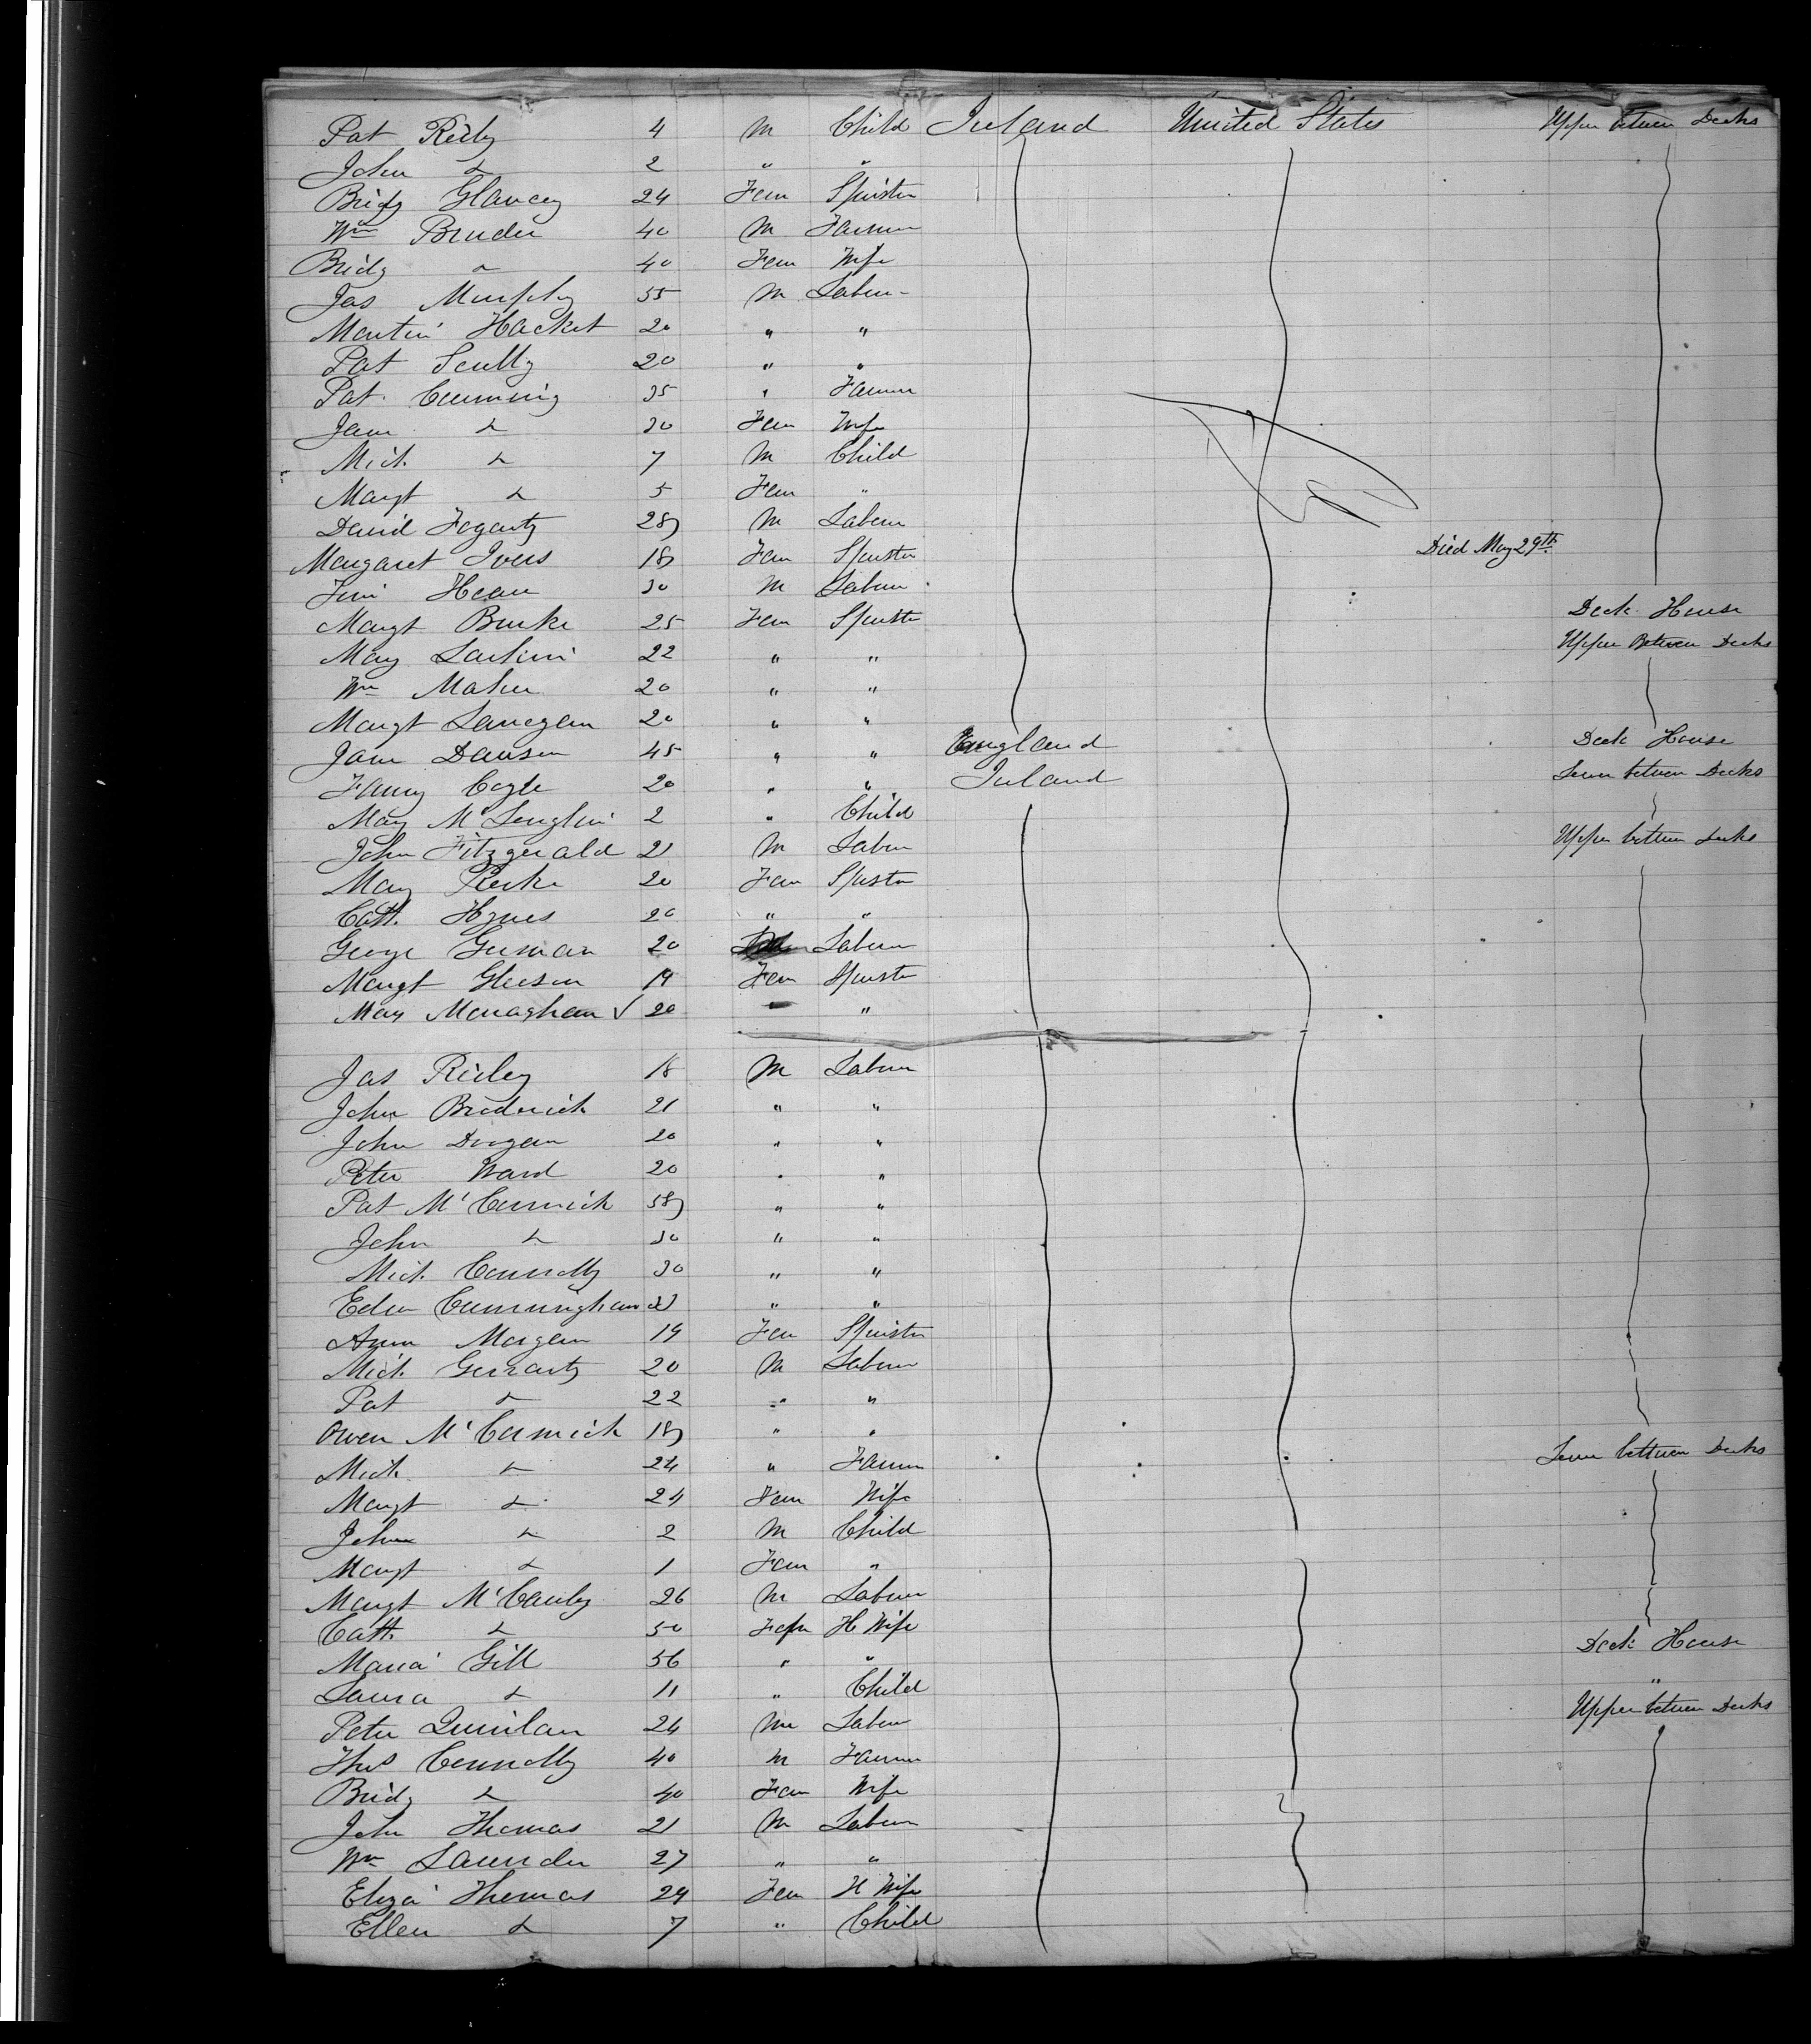 Pat Reily 4 M Child Ireland United States Upper between Decks
John do 2 " "
Bridg Glancey 24 Fem Spinster
Wm Bruder 40 M Farmer
Bridg do 40 Fem Wife
Jas Murphy 55 M Labour
Martin Hacket 20 " "
Pat Scully 20 " "
Pat Cumming 35 " Farmer
Jane do 30 Fem Wife
Mich do 7 M Child
Margt do 5 Fem "
David Fogarty 28 M Labour
Margaret Ivers 18 Fem Spinster Died May 29th
Jim Hean 30 M Labour
Margt Burke 25 Fem Spinster Deck House
Mary Larkin 22 " " Upper Between Decks
Wm Maher 20 " "
Margt Lanegan 20 " "
Jane Dawson 45 " " England Deck House
Fanny Cogle 20 " " Ireland Lower between Decks
Mary McLoughlin 2 " Child
John Fitzgerald 21 M Labour Upper between Decks
Mary 20 Fem Spinster
Cath. Hynes 20 " "
George 20 Labour
Margt Gleeson 19 Fem Spinster
Mary Monaghan √ 20 "
Jas Rieley 18 M Labour
John Broderick 21 " "
John Dorgan 20 " "
Peter Ward 20 " "
Pat McCormick 58 " "
John do 30 " "
Mich. Connolly 30 " "
Edw Cunningham " "
Ann Morgan 19 Fem Spinster
Mich. Gerraty 20 M Labour
Pat do 22 " "
Owen McCormick 18 " "
Mich do 24 " Farmer Lower between Decks
Margt do 24 Fem Wife
John do 2 M Child
Margt do 1 Fem "
Margt McCauley 26 M Labour
Cath. do 50 Fem H Wife
Maria Gill 56 " " Deck House
Laura do 11 " Child "
Peter Quinlan 24 M Labour Upper between Decks
Thos Connolly 40 M Farmer
Bridg do 40 Fem Wife
John Thomas 21 M Labour
Wm Saunder 27 " "
Eliza Thomas 24 Fem H Wife
Ellen do 7 " Child